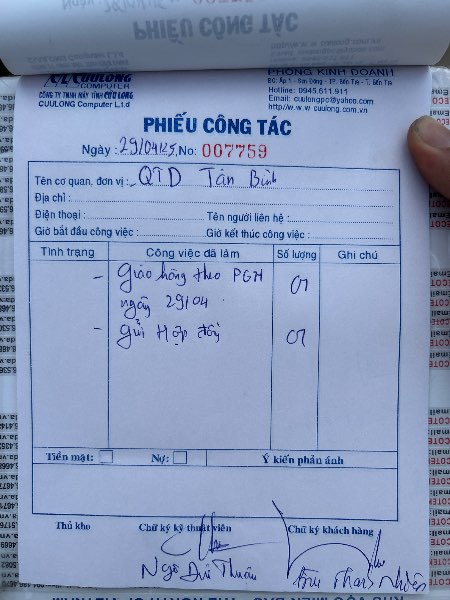 CUULONG
COMPUTER
CÔNG TY TNHH MÁY TÍNH CỬU LONG
CUULONG Computer L.t.d
PHÒNG KINH DOANH
Hotline: 0945.611.911
Email: cuulongpc@yahoo.com
http://w.w.w cuulong.com.vn
PHIẾU CÔNG TÁC
Ngày: 29/04/25, No: 007759
Tên cơ quan, đơn vị: QTD Tân Bình
Địa chỉ:
Điện thoại: Tên người liên hệ:
Giờ bắt đầu công việc: Giờ kết thúc công việc:
Tình trạng Công việc đã làm Số lượng Ghi chú
- Giao hàng theo PGH 01
ngày 29/04.
- Gửi Hợp đồng 01
Tiền mặt: Nợ: Ý kiến phản ánh
Thủ kho Chữ ký kỹ thuật viên Chữ ký khách hàng